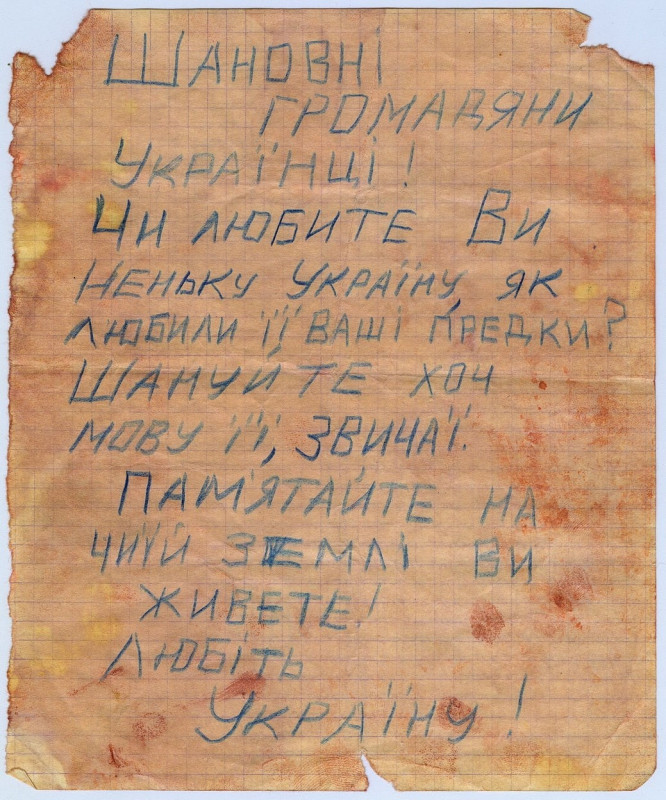 Шановні
громадяни
Українці!
Чи любите Ви
Неньку Україну, як
любили її ваші предки?
Шануйте хоч
мову її, звичаї.
Пам'ятайте на
чиїй землі ви
живете!
Любіть
Україну!